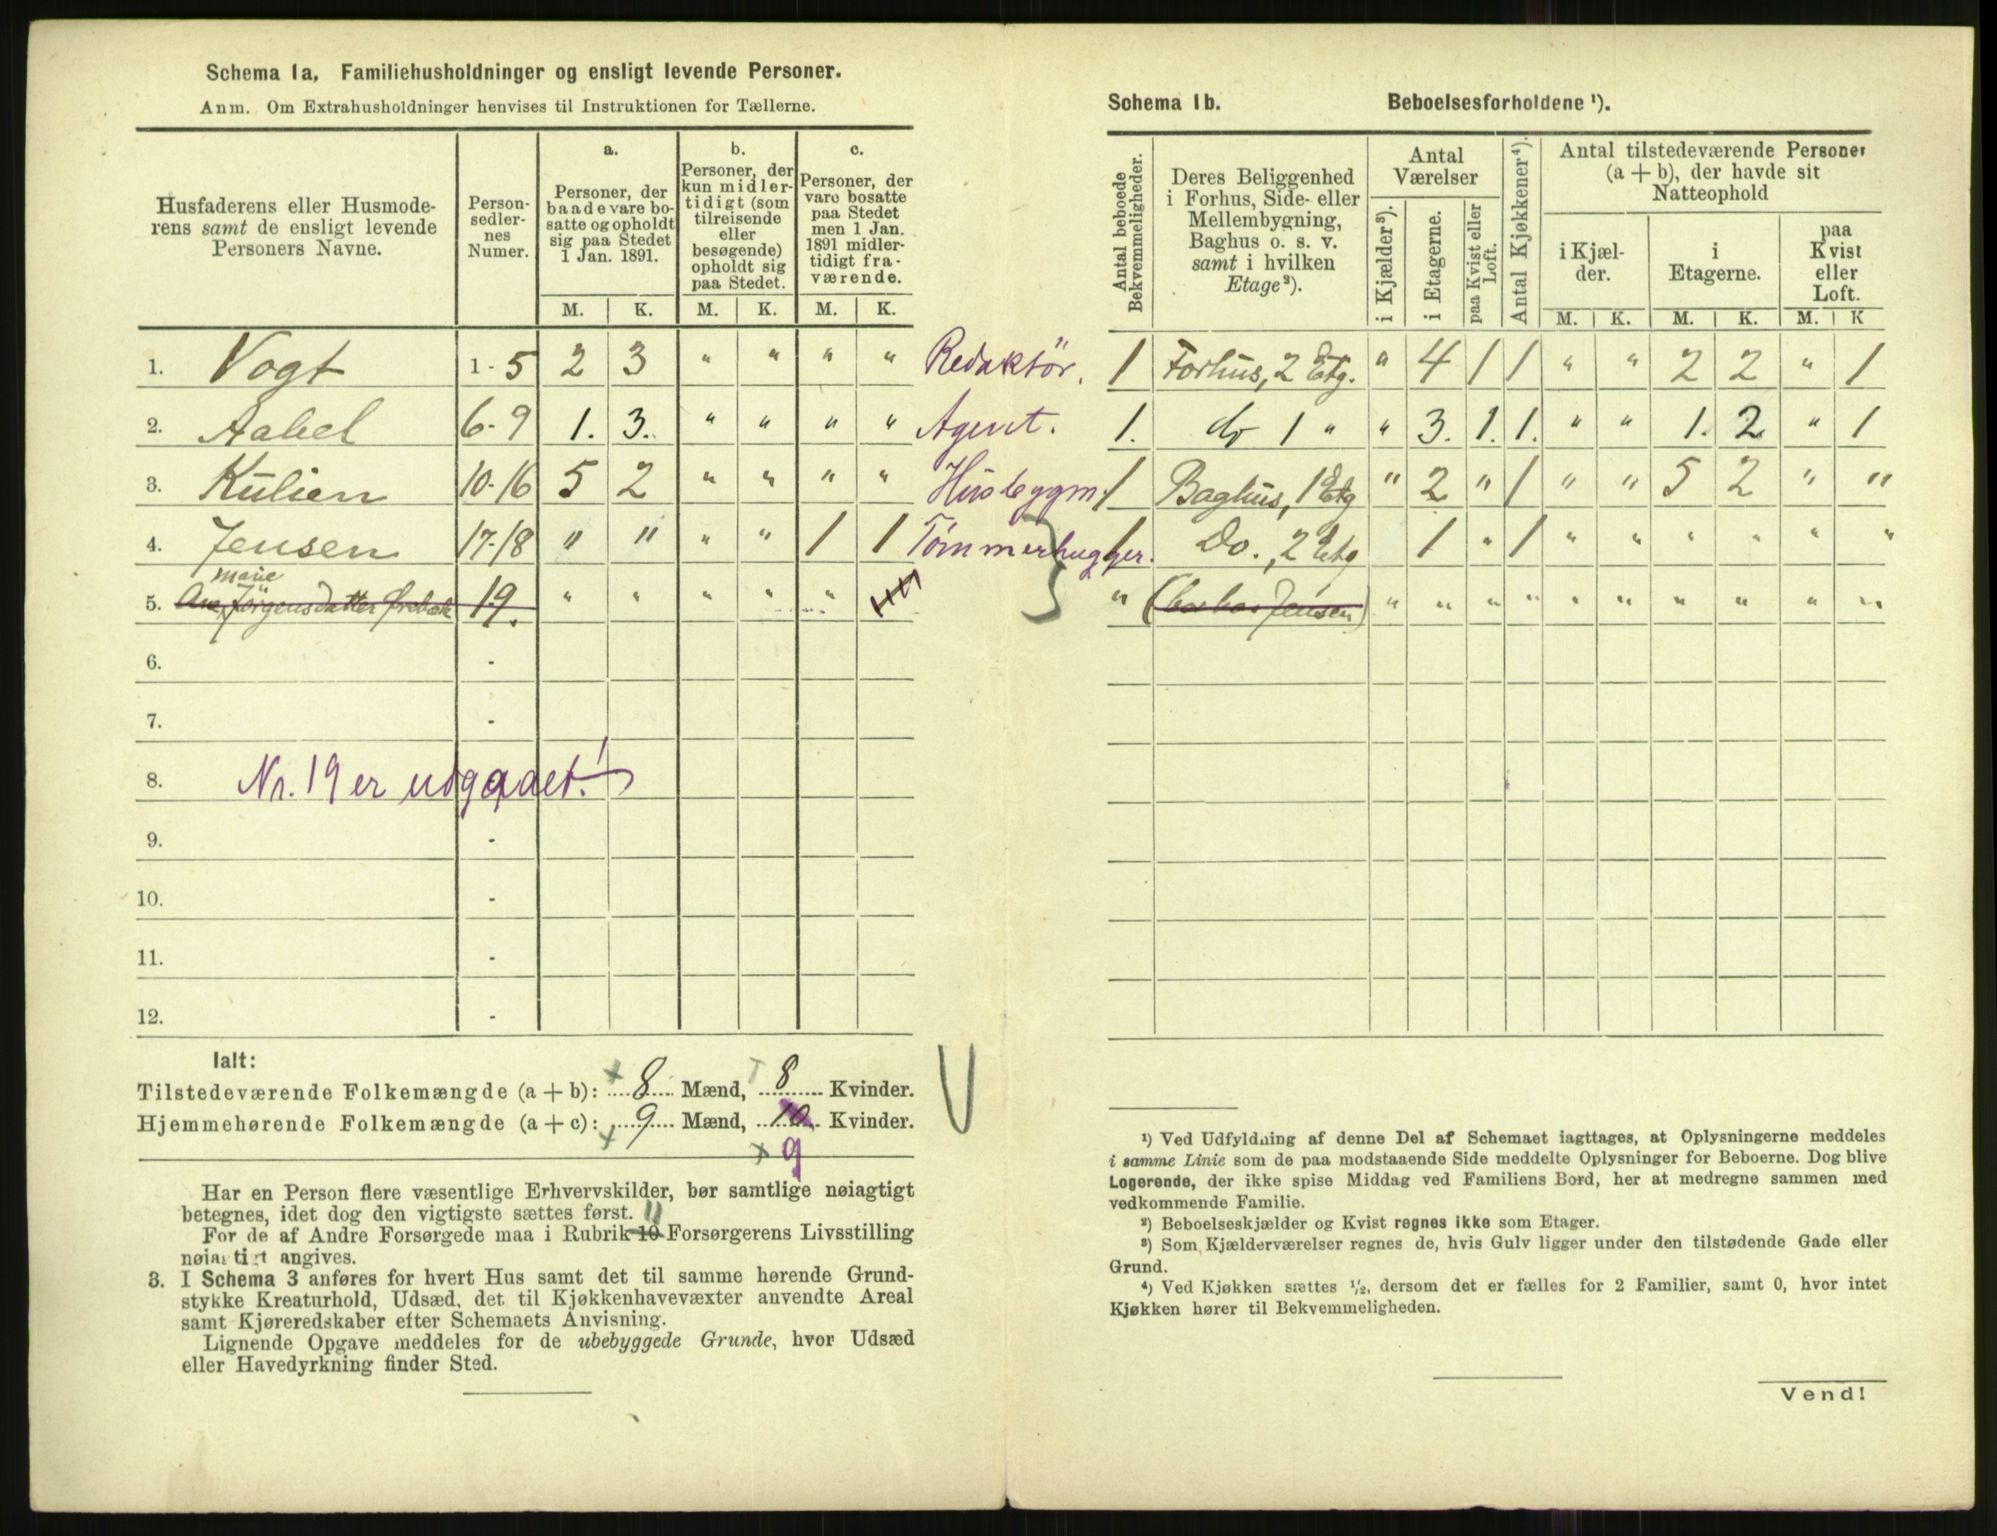 Schema 1a, Familiehusholdninger og ensligt levende Personer.
Anm. Om Extrahusholdninger henvises til Instruktionen for Tællerne.
Husfaderens eller Husmode-
rens samt de ensligt levende
Personers Navne.
Person-
sedler-
nes
Numer.
a.
Personer, der
baade vare bo-
satte og opholdt
sig paa Stedet
1 Jan. 1891.
b.
Personer, der
kun midler-
tidigt (som
tilreisende
eller
besøgende)
opholdt sig
paa Stedet.
c.
Personer, der
vare bosatte
paa Stedet
men 1 Jan.
1891 midler-
tidigt fra-
værende.
M. K. M. K. M. K.
1. Vogt 1-5 2 3 " " " " Redaktör.
2. Aabel 6-9 1. 3. " " " " Agent.
3. Kulien 10-16 5 2 " " " " Husbyggm.
4. Jensen 17-18 " " " " 1 1 Tømmerhugger.
marie
5. Ane Jörgensdatter 19. " " " " "
6. -
7. -
8. Nr. 19 er udgaaet!
9. -
10. -
11. -
12. -
Ialt:
Tilstedeværende Folkemængde (a + b): 8 Mænd, 8 Kvinder.
Hjemmehørende Folkemængde (a + c): 9 Mænd, 10 Kvinder.
9
Har en Person flere væsentlige Erhvervskilder, bør samtlige nøiagtigt
betegnes, idet dog den vigtigste sættes først.
11
For de af Andre Forsørgede maa i Rubrik 10 Forsørgerens Livsstilling
nøiagtigt angives.
3. I Schema 3 anføres for hvert Hus samt det til samme hørende Grund-
stykke Kreaturhold, Udsæd, det til Kjøkkenhavevæxter anvendte Areal
samt Kjøreredskaber efter Schemaets Anvisning.
Lignende Opgave meddeles for de ubebyggede Grunde, hvor Udsæd
eller Havedyrkning finder Sted.
Schema 1b. Beboelsesforholdene ¹).
Antal beboede
Bekvemmeligheder.
Deres Beliggenhed
i Forhus, Side- eller
Mellembygning,
Baghus o. s. v.
samt i hvilken
Etage²).
Antal
Værelser
i Kjælder³).
i Etagerne.
paa Kvist eller
Loft.
Antal Kjøkkener⁴).
Antal tilstedeværende Personer
(a + b), der havde sit
Natteophold
i Kjæl-
der.
i
Etagerne.
paa
Kvist
eller
Loft.
M. K. M. K. M. K
1 Forhus, 2 Etg. " 4 1 1 " " 2 2 " 1
1. do 1 " " 3. 1. 1. " " 1. 2 " 1
1 Baghus, 1 Etg " 2 " 1 " " 5 2 " "
1 Do., 2 Etg 1 " 1 " " " " " "
" (bor hos Jensen) " " " " " " " " " "
¹) Ved Udfyldning af denne Del af Schemaet iagttages, at Oplysningerne meddeles
i samme Linie som de paa modstaaende Side meddelte Oplysninger for Beboerne. Dog blive
Logerende, der ikke spise Middag ved Familiens Bord, her at medregne sammen med
vedkommende Familie.
²) Beboelseskjælder og Kvist regnes ikke som Etager.
³) Som Kjælderværelser regnes de, hvis Gulv ligger under den tilstødende Gade eller
Grund.
⁴) Ved Kjøkken sættes ¹/₂, dersom det er fælles for 2 Familier, samt 0, hvor intet
Kjøkken hører til Bekvemmeligheden.
Vend!